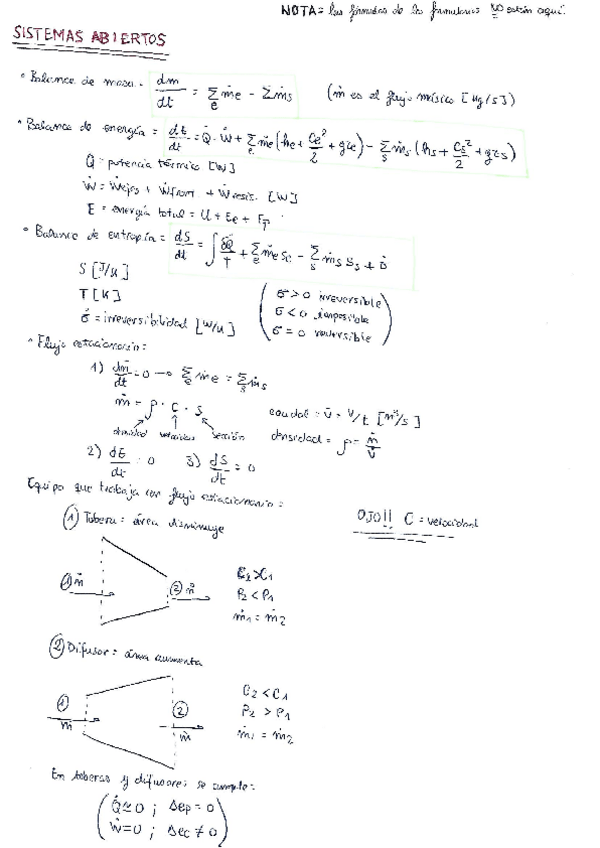 NOTA = las fórmulas de los formularios NO están aquí.
SISTEMAS ABIERTOS
• Balance de masa = dm/dt = Σe ṁe - Σ ṁs (ṁ es el flujo másico [kg/s])
• Balance de energía = dE/dt = Q̇ - Ẇ + Σe ṁe (he + Ce²/2 + gze) - Σs ṁs (hs + Cs²/2 + gzs)
Q̇ = potencia térmica [W]
Ẇ = Ẇejes + Ẇfront + Ẇresis. [W]
E = energía total = U + Ec + Ep
• Balance de entropía = dS/dt = ∫ δQ̇/T + Σe ṁe Se - Σs ṁs Ss + σ̇
S [J/K]
T [K]
σ̇ = irreversibilidad [W/K]
(σ > 0 irreversible
σ < 0 imposible
σ = 0 reversible)
• Flujo estacionario:
1) dm/dt = 0 → Σe ṁe = Σs ṁs
ṁ = ρ · C · S
densidad velocidad sección
caudal = V̇ = V/t [m³/s]
densidad = ρ = ṁ/V̇
2) dE/dt = 0 3) dS/dt = 0
Equipo que trabaja con flujo estacionario:
OJO!! C = velocidad
① Tobera = área disminuye
① ṁ ② ṁ
C2 > C1
P2 < P1
ṁ1 = ṁ2
② Difusor = área aumenta
① ṁ ② ṁ
C2 < C1
P2 > P1
ṁ1 = ṁ2
En toberas y difusores se cumple:
(Q̇ ≈ 0 ; Δep = 0
Ẇ = 0 ; Δec ≠ 0)